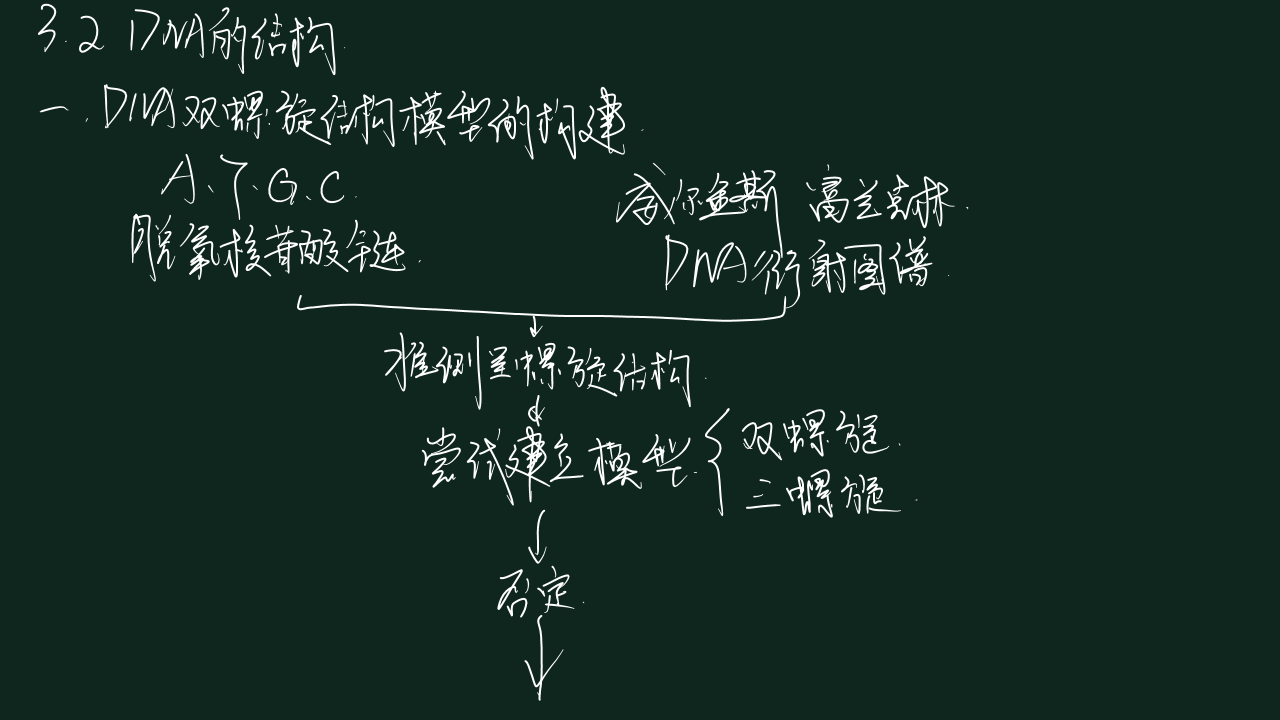 3.2 DNA的结构.
一.DNA双螺旋结构模型的构建.
A、T、G、C.
脱氧核苷酸链.
威尔金斯 富兰克林.
DNA衍射图谱.
推测呈螺旋结构.
尝试建立模型.
双螺旋.
三螺旋.
否定.